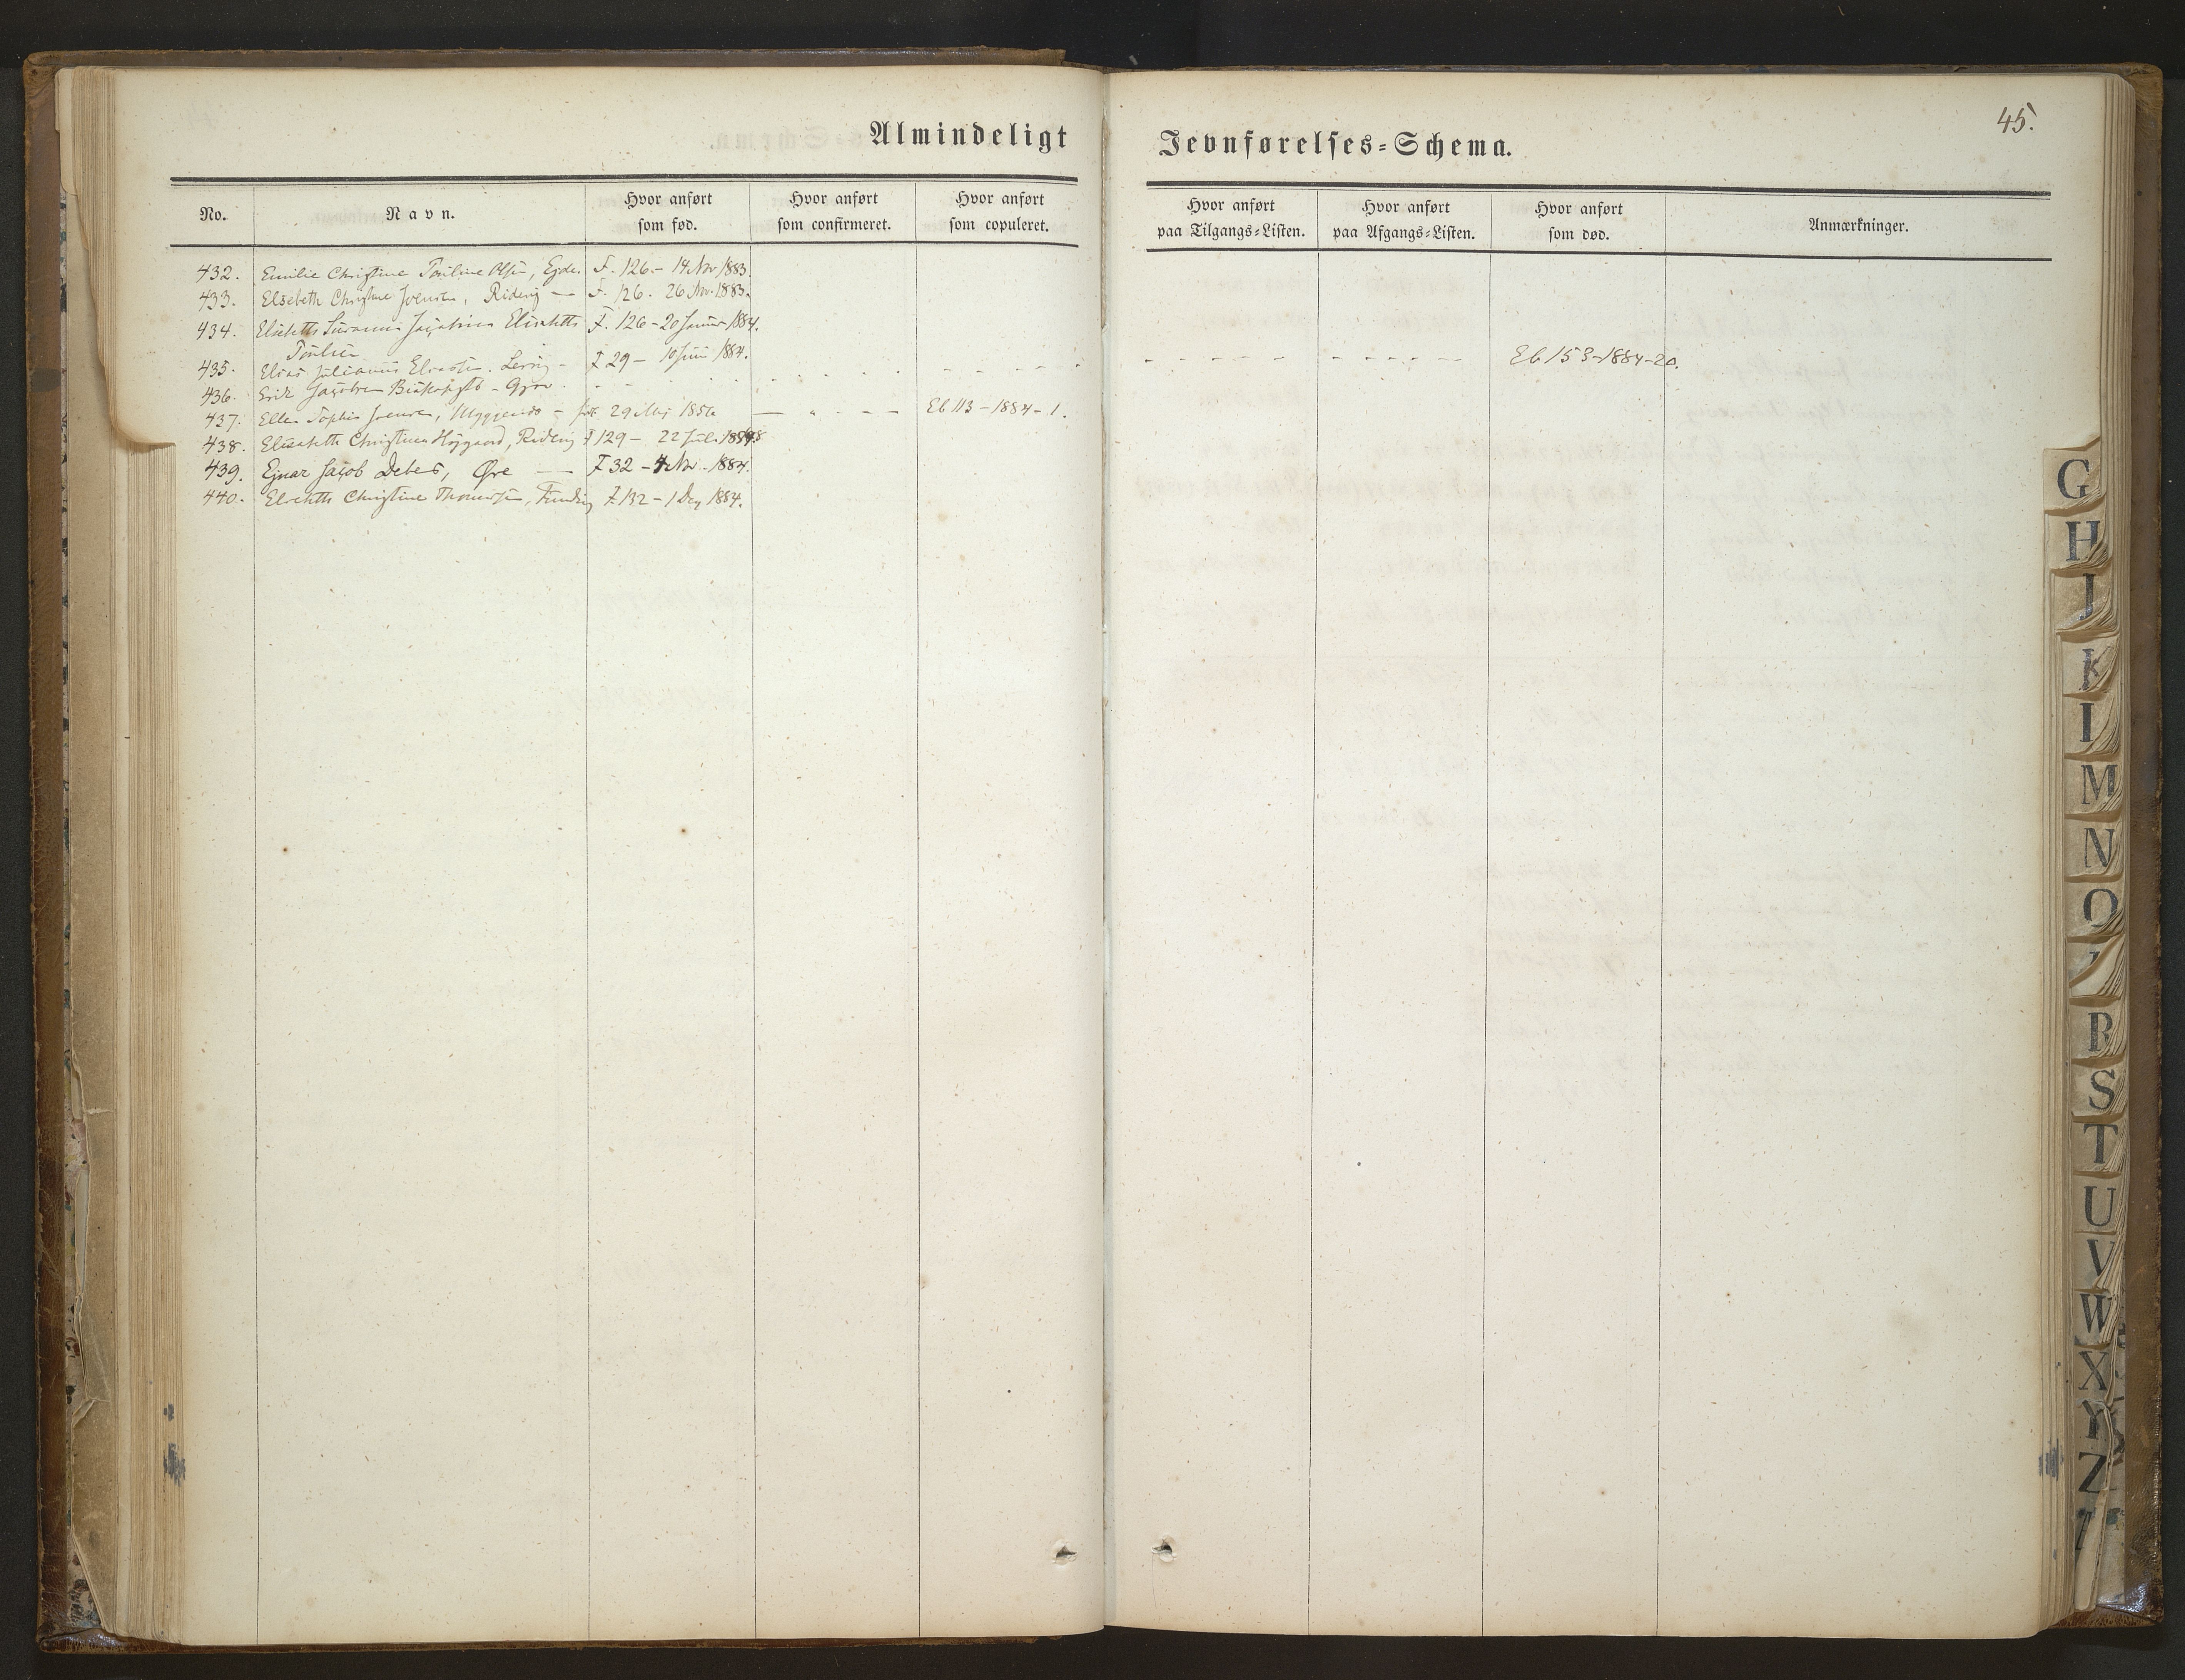 45.
Almindeligt Jevnførelses-Schema.
No. Navn. Hvor anført som fød. Hvor anført som confirmeret. Hvor anført som copuleret. Hvor anført paa Tilgangs-Listen. Hvor anført paa Afgangs-Listen. Hvor anført som død. Anmærkninger.
432. Emilie Christine Pouline Olsen, Ejde. F. 126 - 14 Nov 1883.
433. Elsebeth Christine Joensen, Ridevig — F. 126. 26 Nov. 1883.
434. Elisabeth Susanna Elisabeth F. 126 - 20 Januar 1884.
Poulsen
435. Elias Julianus Eliassen. Lervig - F 29 - 10 Juni 1884. Eb 153-1884-20.
436. Erik Jacobsen Gjov.
437. Ellen Sophie Joensen, - født 29 Maj 1856 — Eb 113 - 1884 - 1.
438. Elisabeth Christine Højgaard, Ridevig F 129 - 22 Juli
439. Ejnar Jacob Debes, Øre — F 32 - 4 Nov. 1884.
440. Elsebeth Christine Thomsen, Funding F 132 - 1 Dec 1884.
G
H
J
K
M
N
O
R
S
T
U
V
W
X
Y
Z